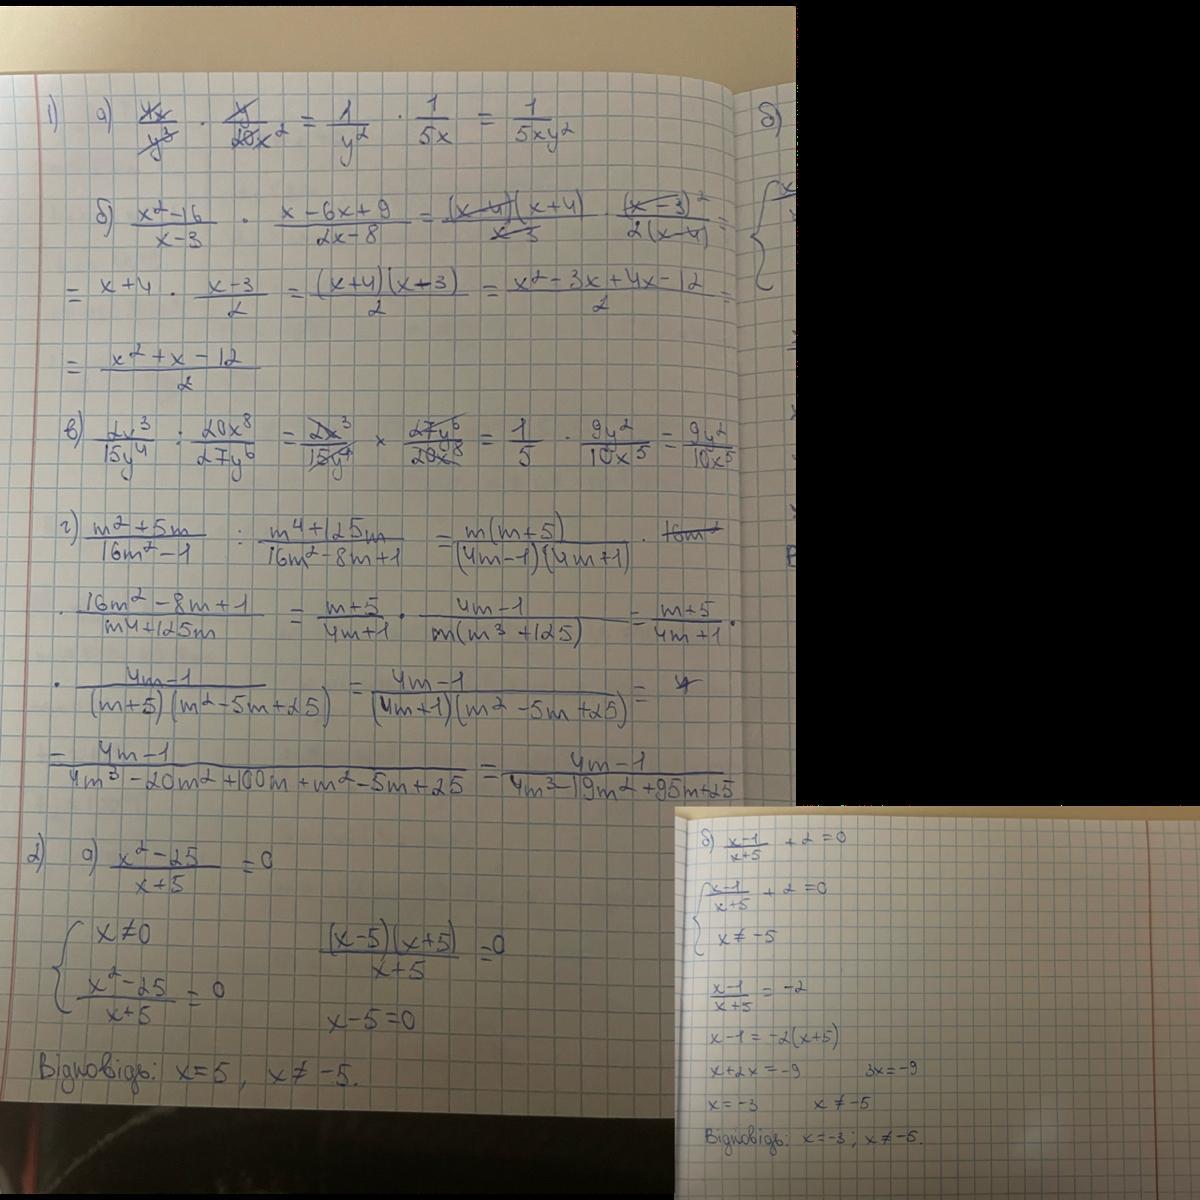 1) а) 4x/y³ · y/20x² = 1/y² · 1/5x = 1/5xy²
б) x²-16/x-3 · x-6x+9/2x-8 = (x-4)(x+4)/x-3 · (x-3)²/2(x-4) =
= x+4 · x-3/2 = (x+4)(x-3)/2 = x²-3x+4x-12/2 =
= x²+x-12/2
в) 2x³/15y⁴ : 20x⁸/27y⁶ = 2x³/15y⁴ × 27y⁶/20x⁸ = 1/5 · 9y²/10x⁵ = 9y²/10x⁵
г) m²+5m/16m²-1 : m⁴+125m/16m²-8m+1 = m(m+5)/(4m-1)(4m+1) · 16m²
· 16m²-8m+1/m4+125m = m+5/4m+1 · 4m-1/m(m³+125) = m+5/4m+1 ·
· 4m-1/(m+5)(m²-5m+25) = 4m-1/(4m+1)(m²-5m+25) =
= 4m-1/4m³-20m²+100m+m²-5m+25 = 4m-1/4m³-19m²+95m+25
2) а) x²-25/x+5 = 0
x≠0 (x-5)(x+5)/x+5 = 0
x²-25/x+5 = 0
x-5=0
Відповідь: x=5, x≠-5.
б)
б) x-1/x+5 + 2 = 0
x-1/x+5 + 2 = 0
x ≠ -5
x-1/x+5 = -2
x-1=-2(x+5)
x+2x=-9 3x=-9
x=-3 x≠-5
Відповідь: x=-3; x≠-5.